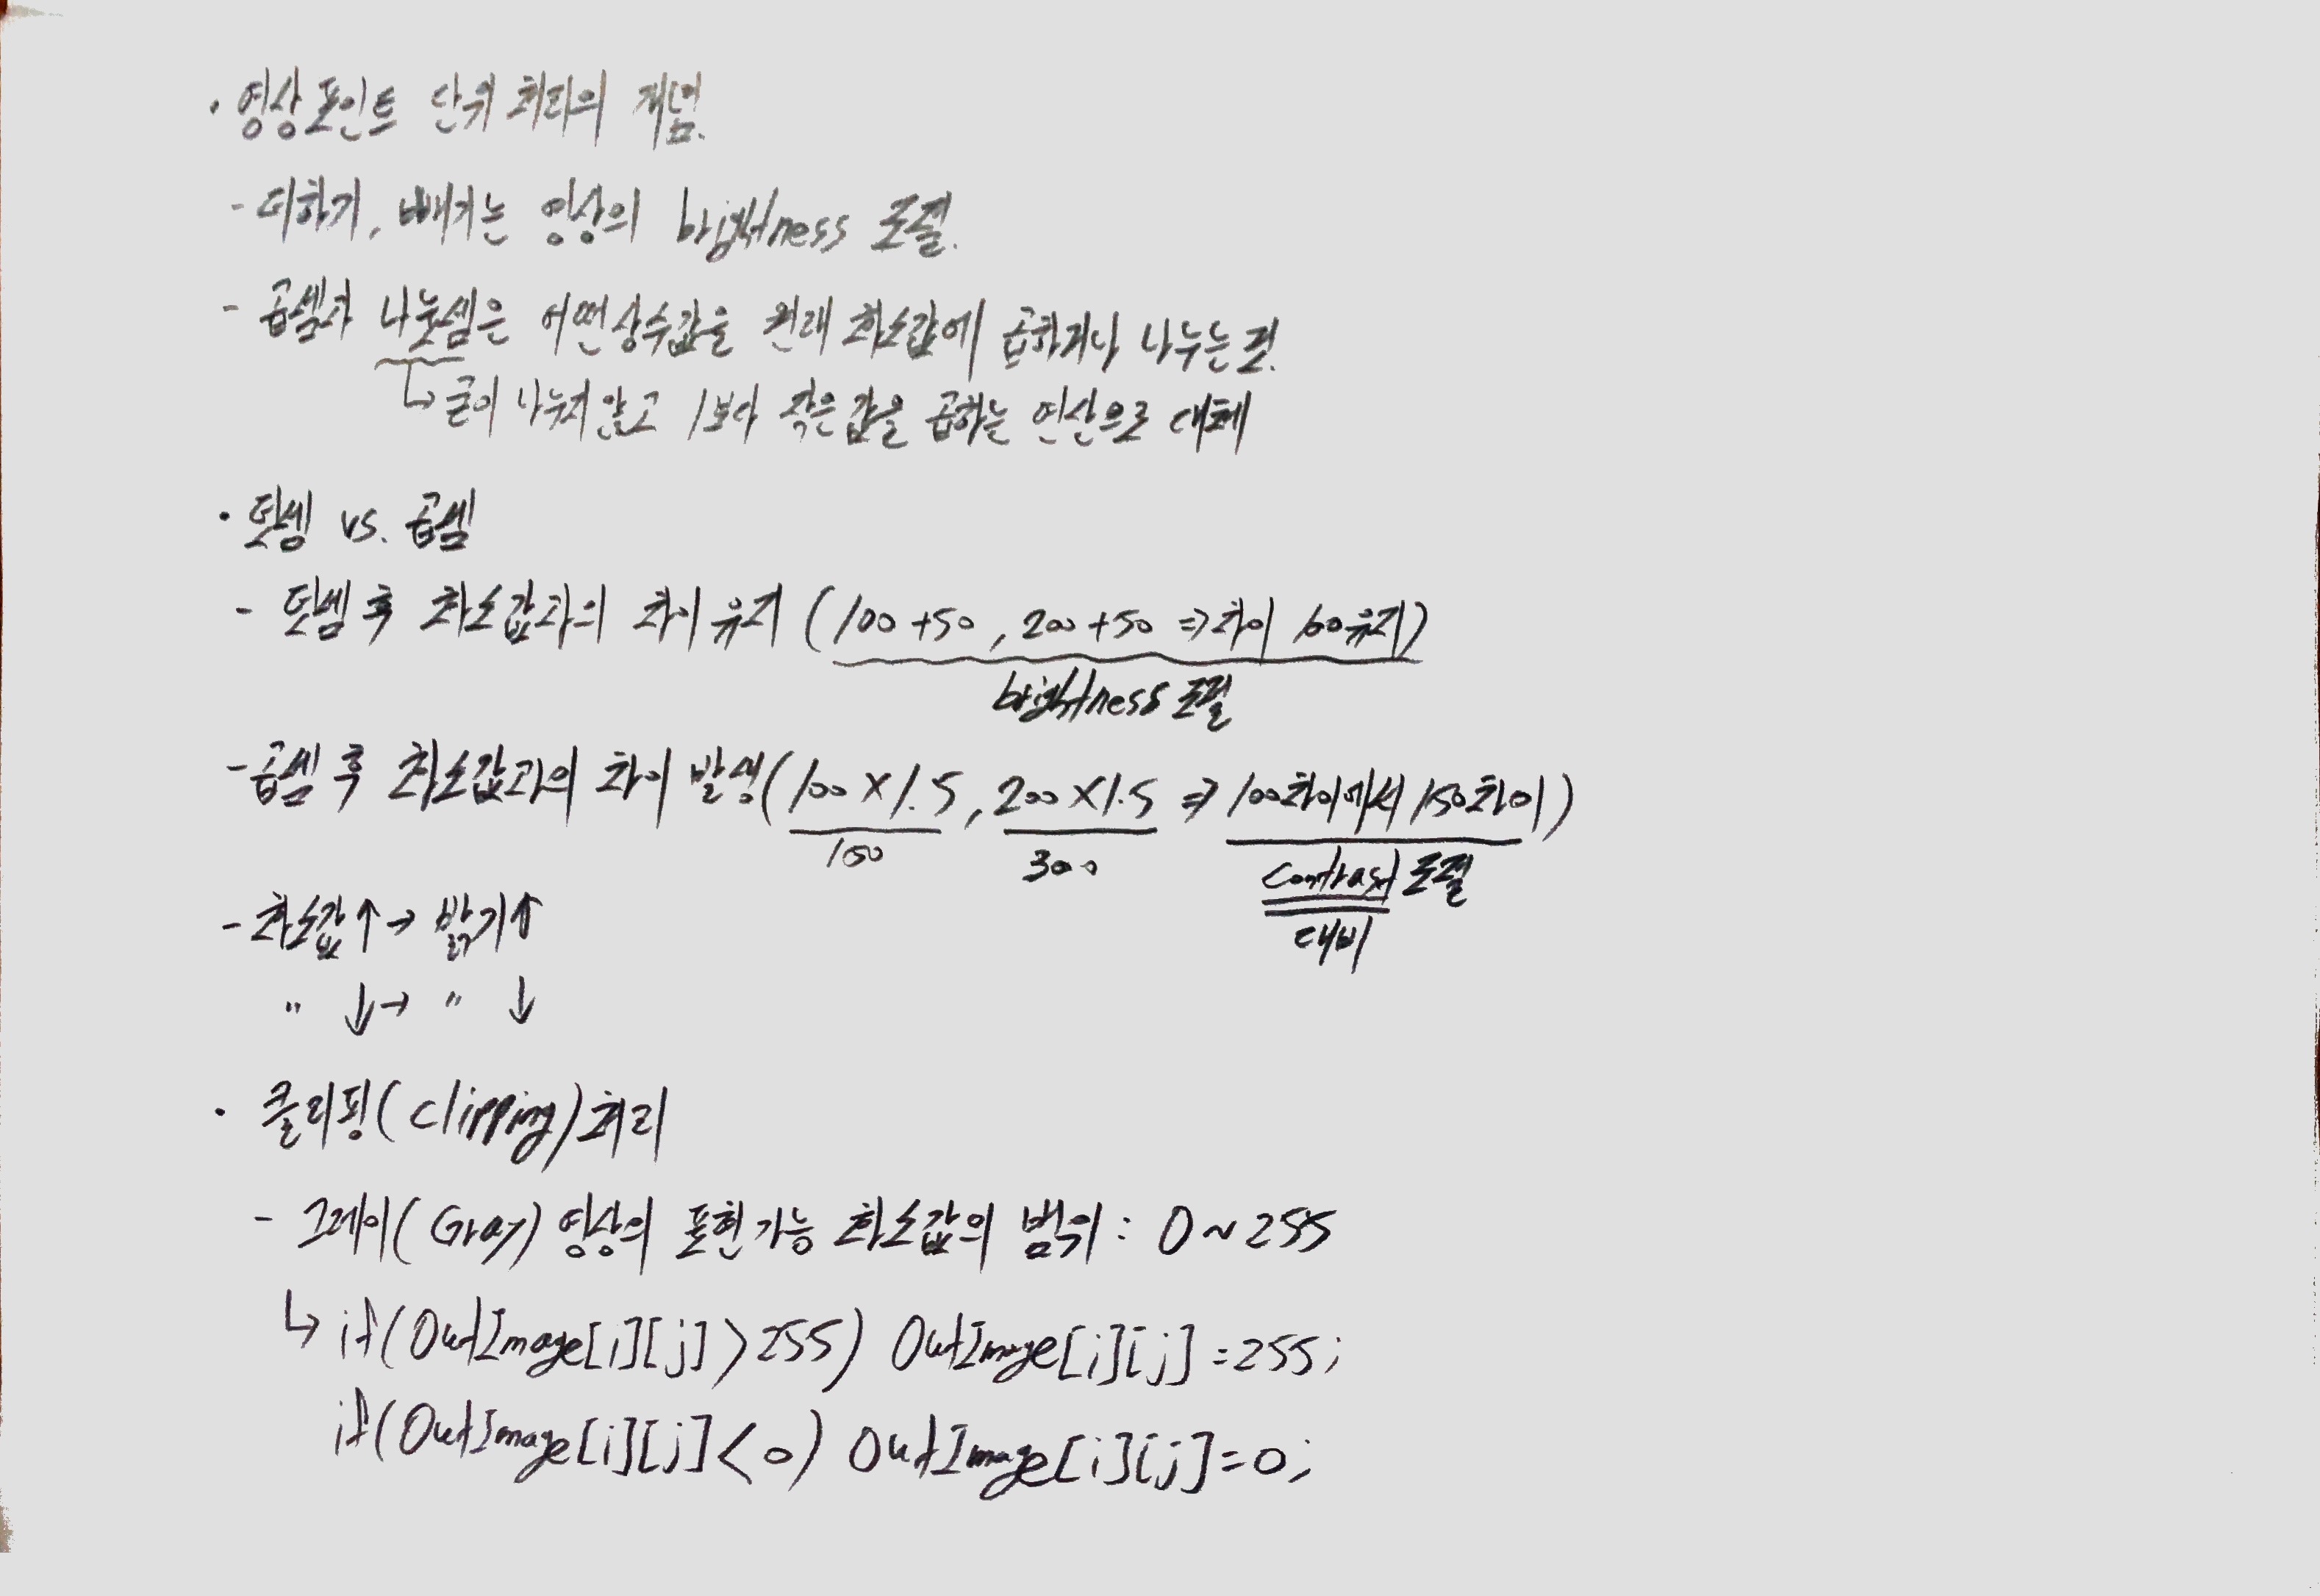 · 영상포인트 단위 처리의 개념.
- 더하기, 빼기는 영상의 brightness 조절.
- 곱셈과 나눗셈은 어떤상수값을 원래 화소값에 곱하거나 나누는것.
↳ 굳이 나누지않고 1보다 작은값을 곱하는 연산으로 대체
· 덧셈 vs. 곱셈
- 덧셈 후 화소값과의 차이 유지 (100+50, 200+50 ⇒ 차이 100유지)
brightness 조절
- 곱셈 후 화소값과의 차이 발생(100×1.5, 200×1.5 ⇒ 100차이에서 150차이)
150 300 contrast 조절
대비
- 화소값↑ → 밝기↑
" ↓ → " ↓
· 클리핑(Clipping)처리
- 그레이(Gray) 영상의 표현가능 화소값의 범위 : 0 ~ 255
↳ if(OutImage[i][j] > 255) OutImage[i][j] = 255;
if(OutImage[i][j] < 0) OutImage[i][j] = 0;